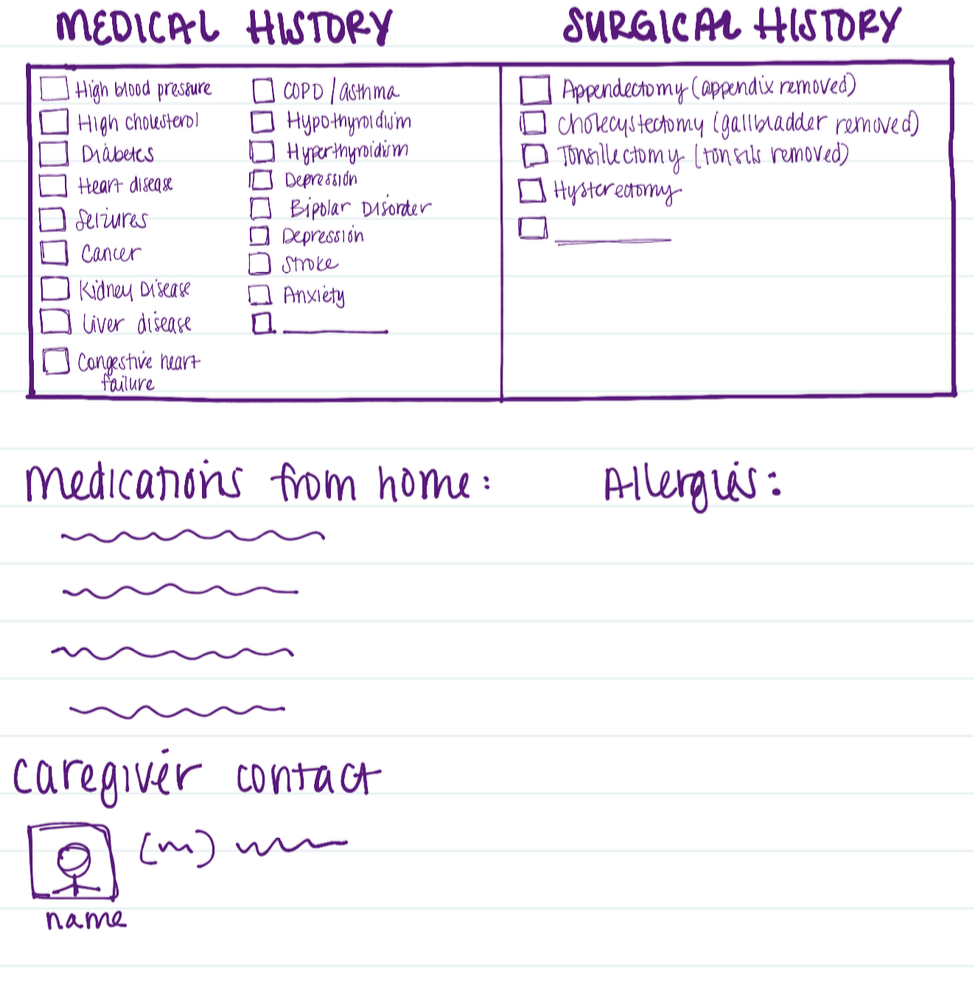 MEDICAL HISTORY
High blood pressure
High cholesterol
Diabetes
Heart disease
Seizures
Cancer
Kidney Disease
Liver disease
Congestive heart
failure
COPD/asthma
Hypothyroidium
Hyperthyroidim
Depression
Bipolar Disorder
Depression
Stroke
Anxiety
SURGICAL HISTORY
Appendectomy (appendix removed)
Cholecystectomy (gallbladder removed)
Tonsillectomy (tonsils removed)
Hysterectomy
Medications from home:
Allergies:
caregiver contact
(m)
name